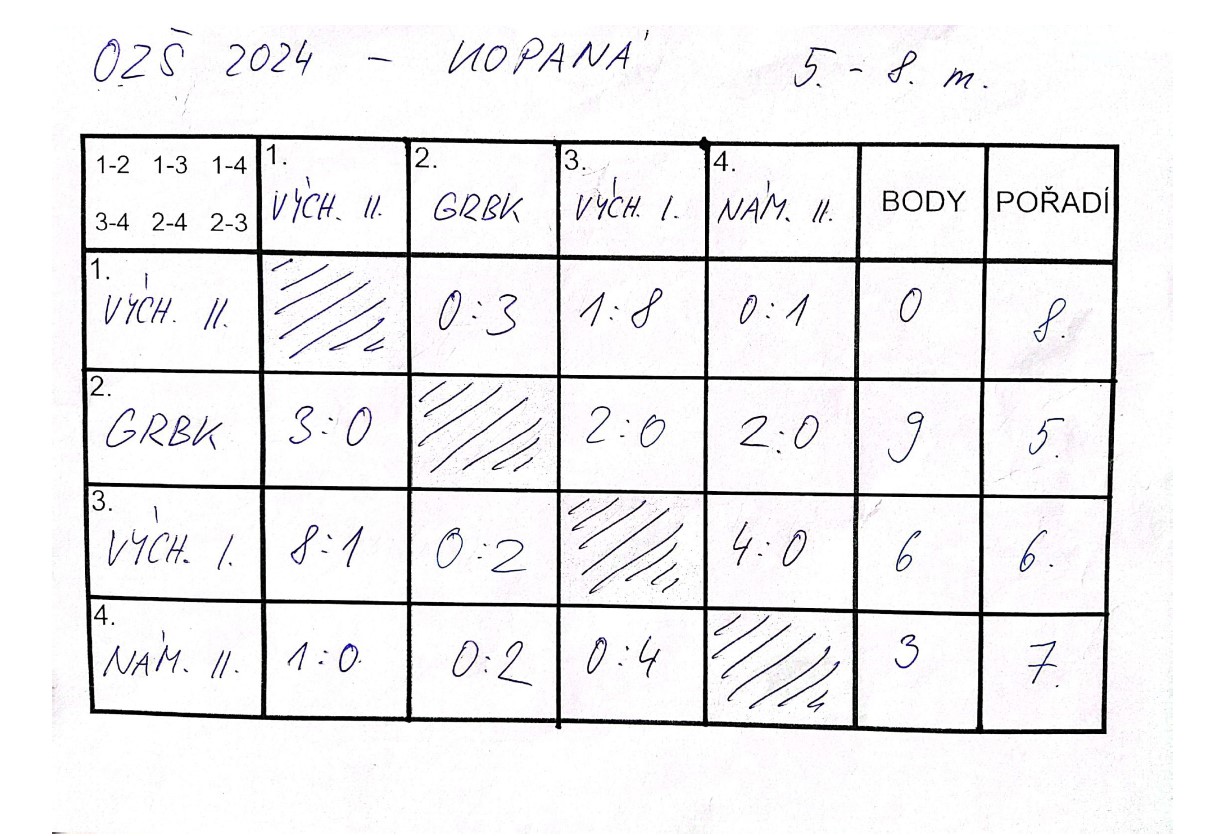 OZŠ 2024 - KOPANÁ 5. - 8. m.
1-2 1-3 1-4 1. 2. 3. 4.
3-4 2-4 2-3 VÝCH. II. GRBK VÝCH. I. NÁM. II. BODY POŘADÍ
1.
VÝCH. II. 0:3 1:8 0:1 0 8.
2.
GRBK 3:0 2:0 2:0 9 5.
3.
VÝCH. I. 8:1 0:2 4:0 6 6.
4.
NÁM. II. 1:0 0:2 0:4 3 7.